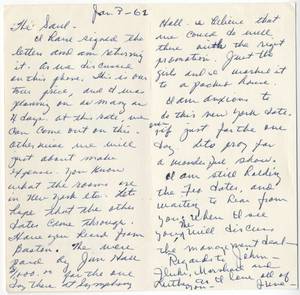 Jan. 7-62
Hi Saul-
I have signed the
letters and am returning
it. As we discussed
on this phone. This is our
true price, and I was
planning on as many as
4 days. at this rate, we
can come out on this.
Otherwise we will
just about make
expense. You know
what the rooms are
in New York etc. Lets
hope that the other
dates come through.
Have you heard from
Boston. We were
paid by Jim Hall
for the one
day there at Symphony
Hall. I believe that
we could do well
there with the right
promotion. Just the
girls and I worked it
to a packed house.
I am anxious to
do this New York date
if just for the one
day. Lets pray for
a wonderful show.
I am still holding
the Feb dates, and
waiting to hear from
you. When I see
you, we will discuss
the management deal.
Regards to John-
Marshall and
as I love all of